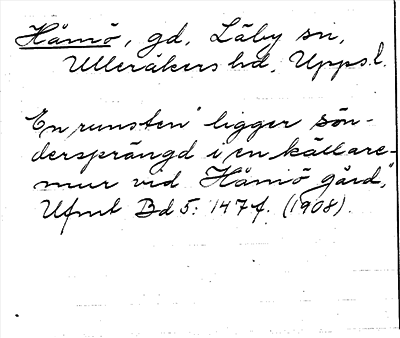 Håmö, gd, Läby sn,
Ulleråkers hd, Upps.l.
"En runsten ligger sön-
dersprängd i en källare-
mur vid Håmö gård",
Ufmt Bd 5: 147 f. (1908).